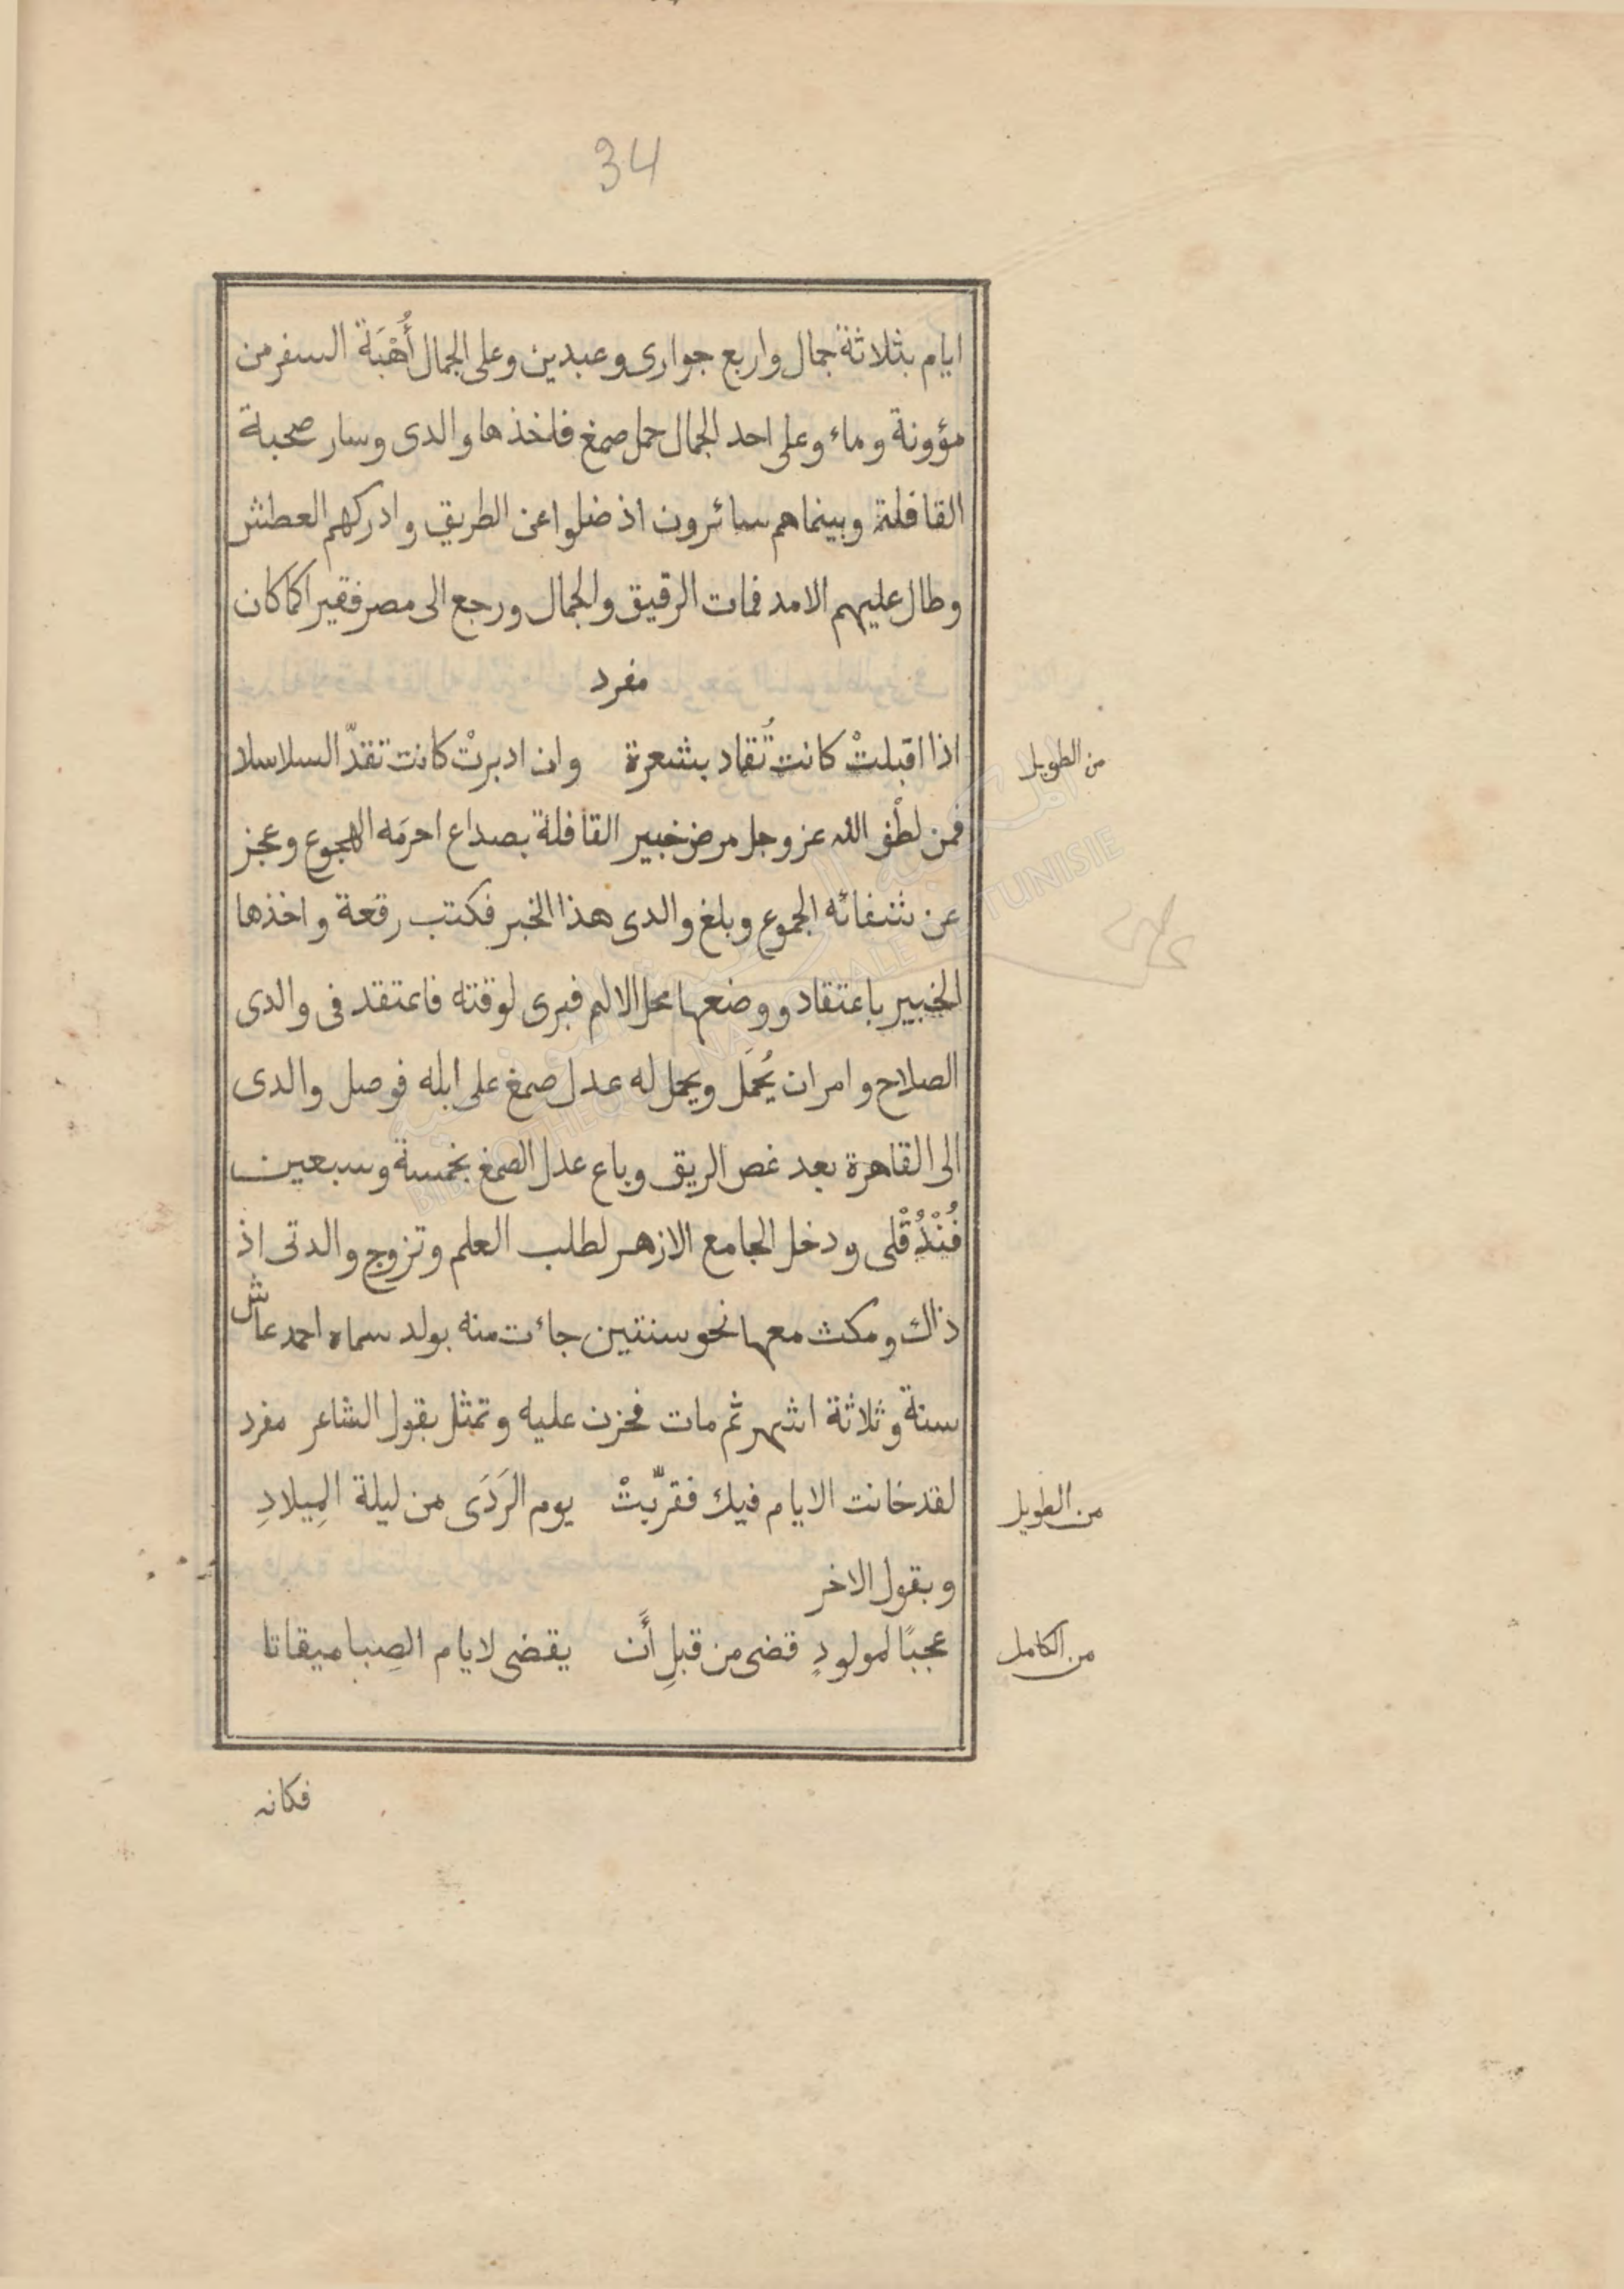 34
ايام بثلاثة جمال واربع جوارى وعبدين وعلى الجمال أُهْبَة السفر من
مؤونة وماء وعلى احد الجمال حمل صمغ فاخذها والدى وسار صحبة
القافلة وبينماهم سائرون اذ ضلوا عن الطريق وادركهم العطش
وطال عليهم الامد فمات الرقيق والجمال ورجع الى مصر فقيرا كما كان
مفرد
اذا اقبلتْ كانت تُقاد بشعرة وان ادبرتْ كانت تقدّ السلاسلا
من الطويل
فمن لطْف الله عز وجل مرض خبير القافلة بصداع احرمَه الهجوع وعجز
عن شفائه الجموع وبلغ والدى هذا الخبر فكتب رقعة واخذها
الخبير باعتقاد ووضعها محل الالم فبرى لوقته فاعتقد فى والدى
الصلاح وامر ان يُحمَل ويحمل له عدل صمغ على ابله فوصل والدى
الى القاهرة بعد غص الريق وباع عدل الصمغ بخمسة وسبعين
فُنْدُقْلى ودخل الجامع الازهر لطلب العلم وتزوج والدتى اذ
ذاك ومكث معها نحو سنتين جاءت منه بولد سماه احمد عاش
سنة وثلاثة اشهر ثم مات فحزن عليه وتمثل بقول الشاعر مفرد
لقد خانت الايام فيك فقرّبتْ يوم الرَدَى من ليلة المِيلادِ
من الطويل
وبقول الاخر
عجبًا لمولودٍ قضى من قبلِ أَن يقضى لايام الصِبا ميقاتا
من الكامل
فكانه
المكتبة الوطنية التونسية
BIBLIOTHEQUE NATIONALE DE TUNISIE